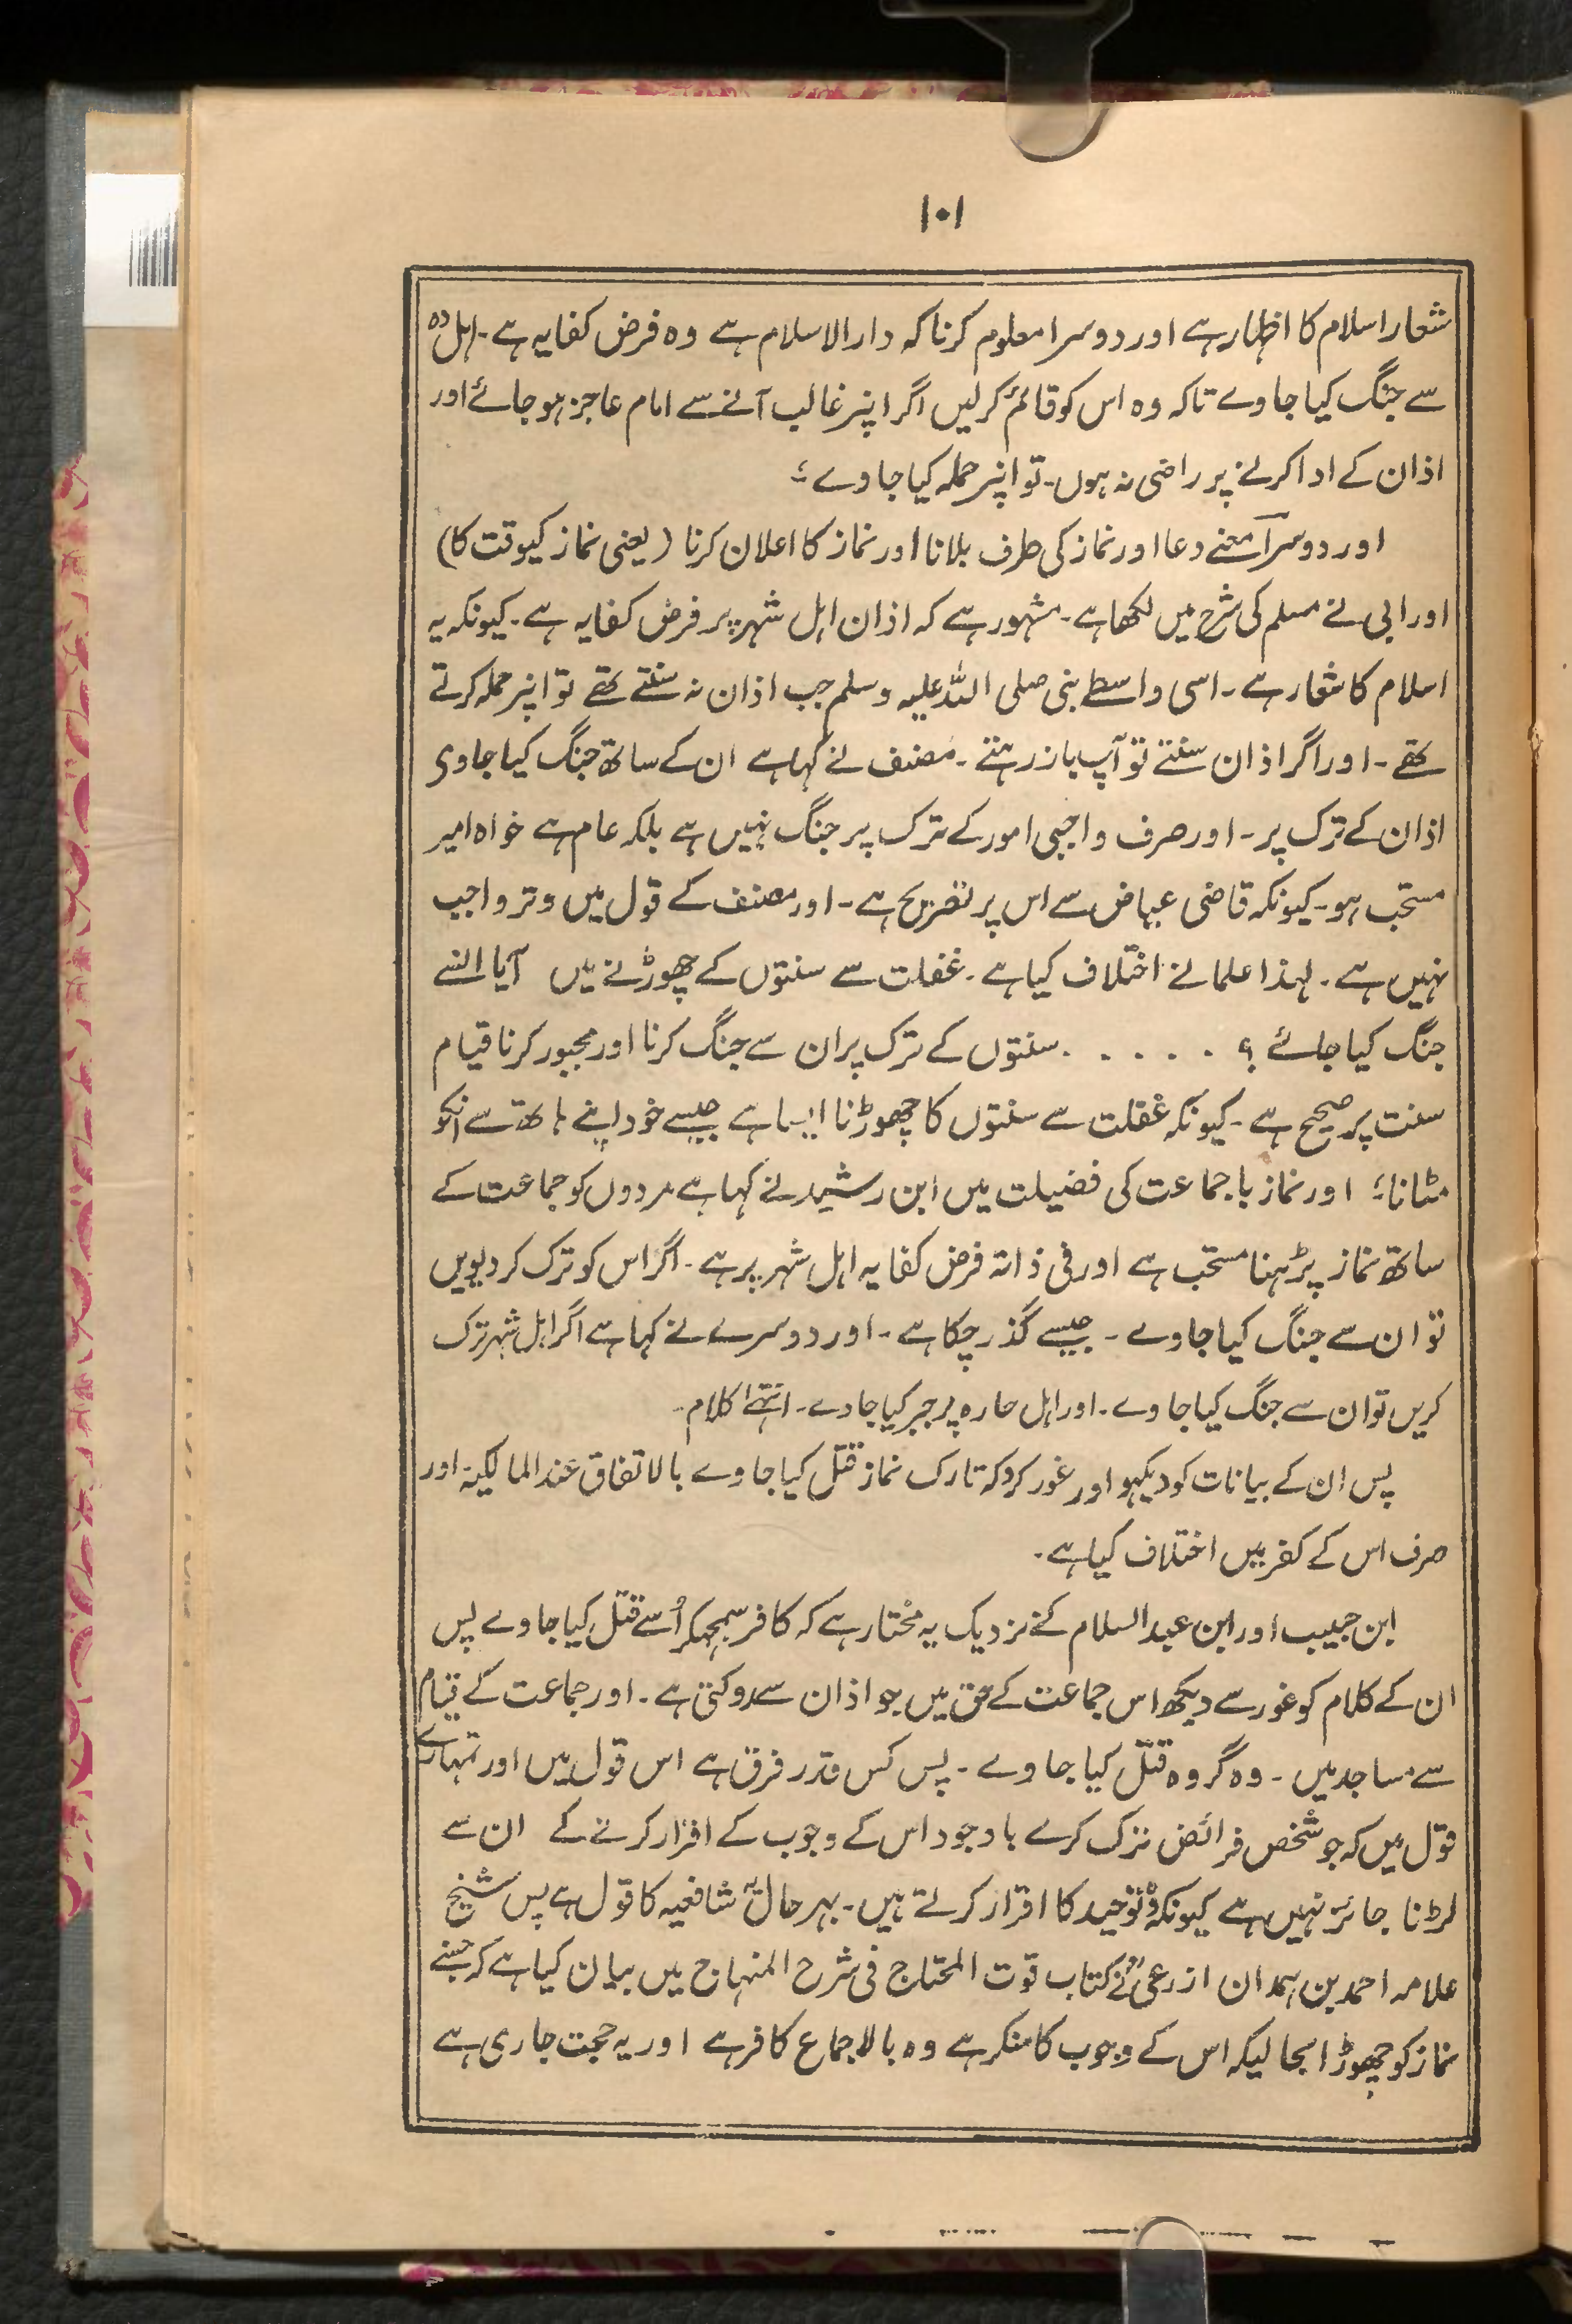 ۱۰۱
شعار اسلام کا اظہار ہے اور دوسرا معلوم کرنا کہ دارالاسلام ہے وہ فرض کفایہ ہے۔ اہل دہ
سے جنگ کیا جاوے تاکہ وہ اس کو قائم کرلیں اگر اپنر غالب آنے سے امام عاجز ہو جائے اور
اذان کے ادا کرنے پر راضی نہ ہوں۔ تو اپنر حملہ کیا جاوے ؛
اور دوسرا معنے دعا اور نماز کی طرف بلانا اور نماز کا اعلان کرنا (یعنی نماز کیوقت کا)
اور ابی نے مسلم کی شرح میں لکھا ہے۔ مشہور ہے کہ اذان اہل شہر پر فرض کفایہ ہے۔ کیونکہ یہ
اسلام کا شعار ہے۔ اسی واسطے بنی صلی اللہ علیہ وسلم جب اذان نہ سنتے تھے تو اپنر حملہ کرتے
تھے۔ اور اگر اذان سنتے تو آپ باز رہتے۔ مصنف نے کہا ہے ان کے ساتھ جنگ کیا جاوی
اذان کے ترک پر۔ اور صرف واجبی امور کے ترک پر جنگ نہیں ہے بلکہ عام ہے خواہ امیر
مستحب ہو۔ کیونکہ قاضی عیاض سے اس پر تصریح ہے۔ اور مصنف کے قول میں وتر واجب
نہیں ہے۔ لہذا علما نے اختلاف کیا ہے۔ غفلت سے سنتوں کے چھوڑنے میں آیا النسے
جنگ کیا جائے ؟ . . . . . سنتوں کے ترک پر ان سے جنگ کرنا اور مجبور کرنا قیام
سنت پر صحیح ہے۔ کیونکہ غفلت سے سنتوں کا چھوڑنا ایسا ہے جیسے خود اپنے ہاتھ سے انکو
مٹانا؛ اور نماز با جماعت کی فضیلت میں ابن رشید نے کہا ہے مردوں کو جماعت کے
ساتھ نماز پڑہنا مستحب ہے اور فی ذاتہ فرض کفایہ اہل شہر پر ہے۔ اگر اس کو ترک کر دیویں
تو ان سے جنگ کیا جاوے۔ جیسے گذر چکا ہے۔ اور دوسرے نے کہا ہے اگر اہل شہر ترک
کریں تو ان سے جنگ کیا جاوے۔ اور اہل حارہ پر جبر کیا جاوے۔ انتہٰے کلام۔
پس ان کے بیانات کو دیکہو اور غور کرو کہ تارک نماز قتل کیا جاوے بالاتفاق عند المالکیۃ اور
صرف اس کے کفر میں اختلاف کیا ہے۔
ابن حبیب اور ابن عبد السلام کے نزدیک یہ مختار ہے کہ کافر سمجہکر اُسے قتل کیا جاوے پس
ان کے کلام کو غور سے دیکھ اس جماعت کے حق میں جو اذان سے روکتی ہے۔ اور جماعت کے قیام
سے مساجد میں۔ وہ گروہ قتل کیا جاوے۔ پس کس قدر فرق ہے اس قول میں اور تمہارے
قول میں کہ جو شخص فرائض ترک کرے باوجود اس کے وجوب کے اقرار کرنے کے ان سے
لڑنا جائز نہیں ہے کیونکہ وہ توحید کا اقرار کرتے ہیں۔ بہر حال یہ شافعیہ کا قول ہے پس شیخ
علامہ احمد بن ہمدان ازرعیؒ نے کتاب قوت المحتاج فی شرح المنہاج میں بیان کیا ہے کہ جسنے
نماز کو چھوڑا بحالیکہ اس کے وجوب کا منکر ہے وہ بالاجماع کافر ہے اور یہ حجت جاری ہے